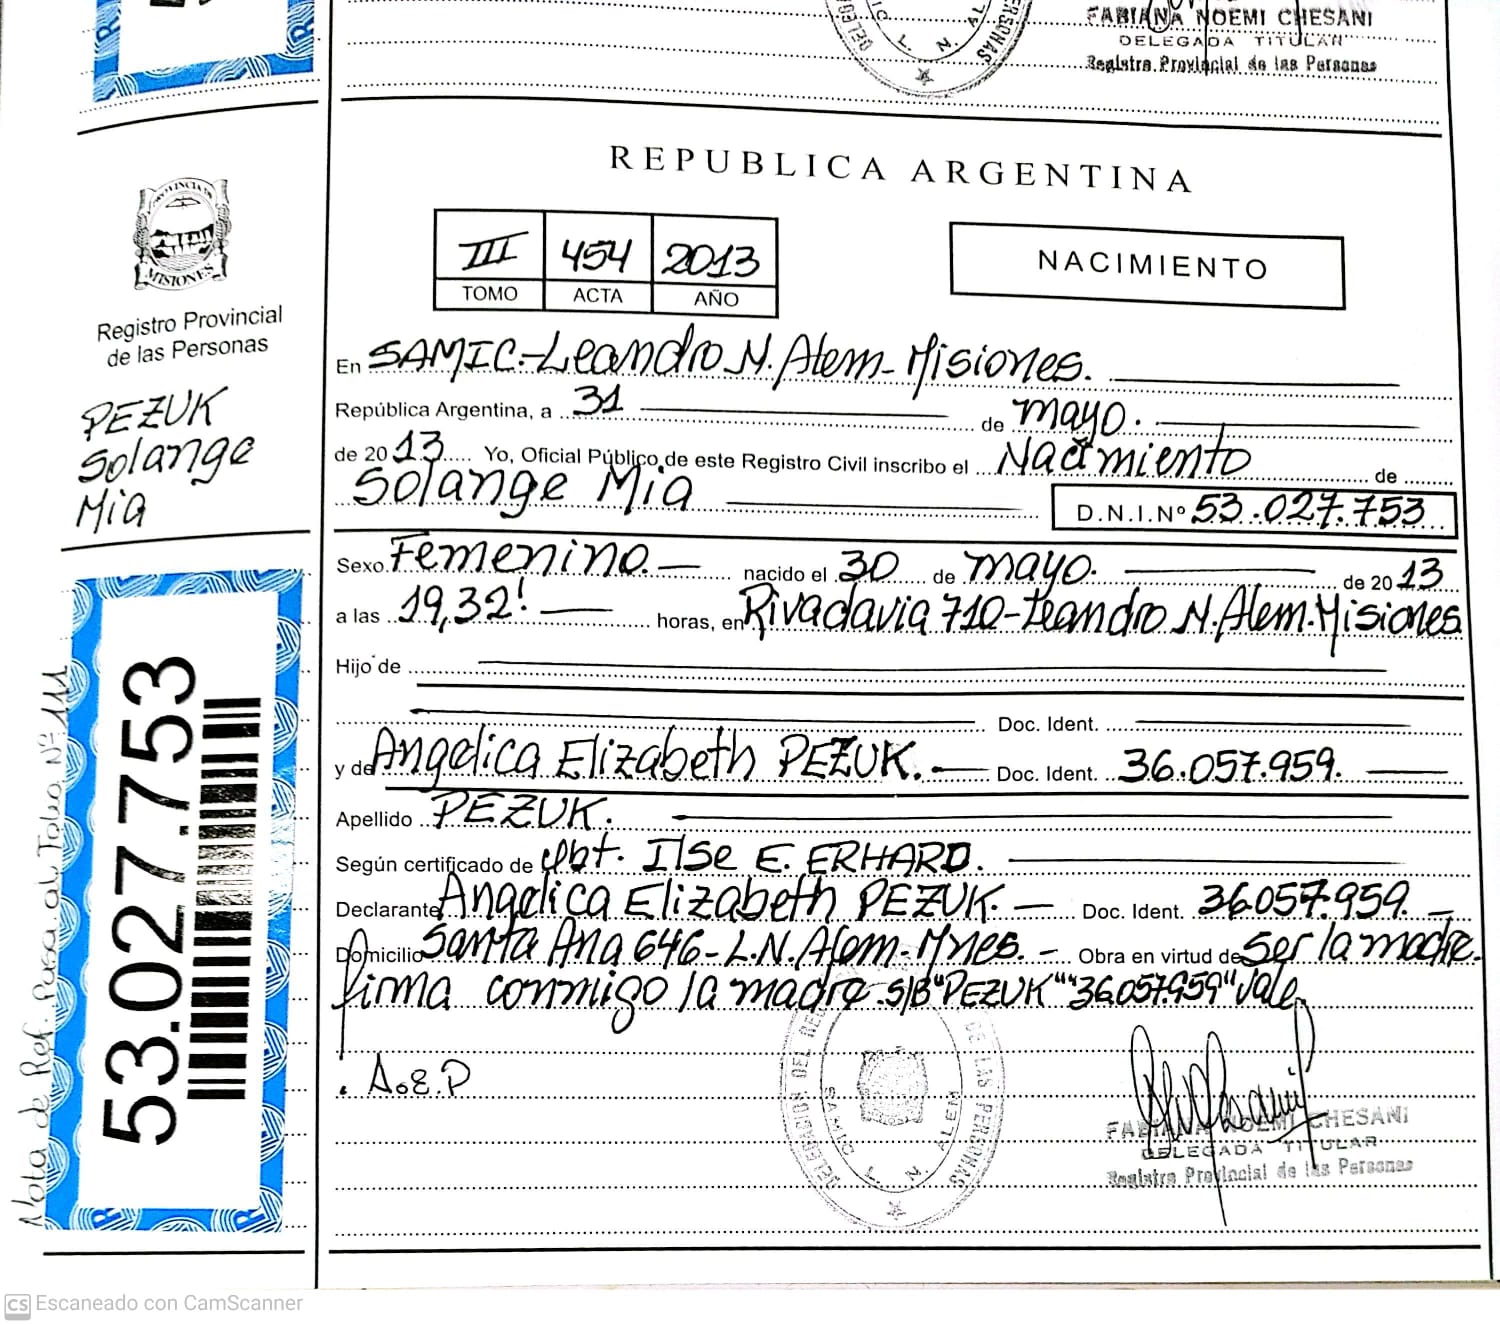 FABIANA NOEMI CHESANI
DELEGADA TITULAR
Registro Provincial de las Personas
REPUBLICA ARGENTINA
III 454 2013
TOMO ACTA AÑO
NACIMIENTO
PROVINCIA DE
MISIONES
Registro Provincial
de las Personas
PEZUK
Solange
Mia
En SAMIC.-Leandro N. Alem-Misiones.
República Argentina, a 31 de mayo.
de 2013 Yo, Oficial Público de este Registro Civil inscribo el Nacimiento de
Solange Mia
D.N.I.Nº 53.027.753
Sexo Femenino. nacido el 30 de mayo. de 2013
a las 19,32! horas, en Rivadavia 710-Leandro N. Alem.Misiones
Hijo de
Doc. Ident.
y de Angelica Elizabeth PEZUK. Doc. Ident. 36.057.959.
Apellido PEZUK.
Según certificado de Obt. Ilse E. ERHARD.
Declarante Angelica Elizabeth PEZUK. Doc. Ident. 36057.959.
Domicilio Santa Ana 646-L.N.Alem-Mnes. Obra en virtud de Ser la madre.
firma conmigo la madre S/B "PEZUK" "36.057.959" Vale
A.E.P
DELEGACION DEL REG DE LAS PERSONAS
SAMIC L. N. ALEM
FABIANA NOEMI CHESANI
DELEGADA TITULAR
Registro Provincial de las Personas
53.027.753
Nota de Ref. Pasa al Folio Nº 111
CS Escaneado con CamScanner